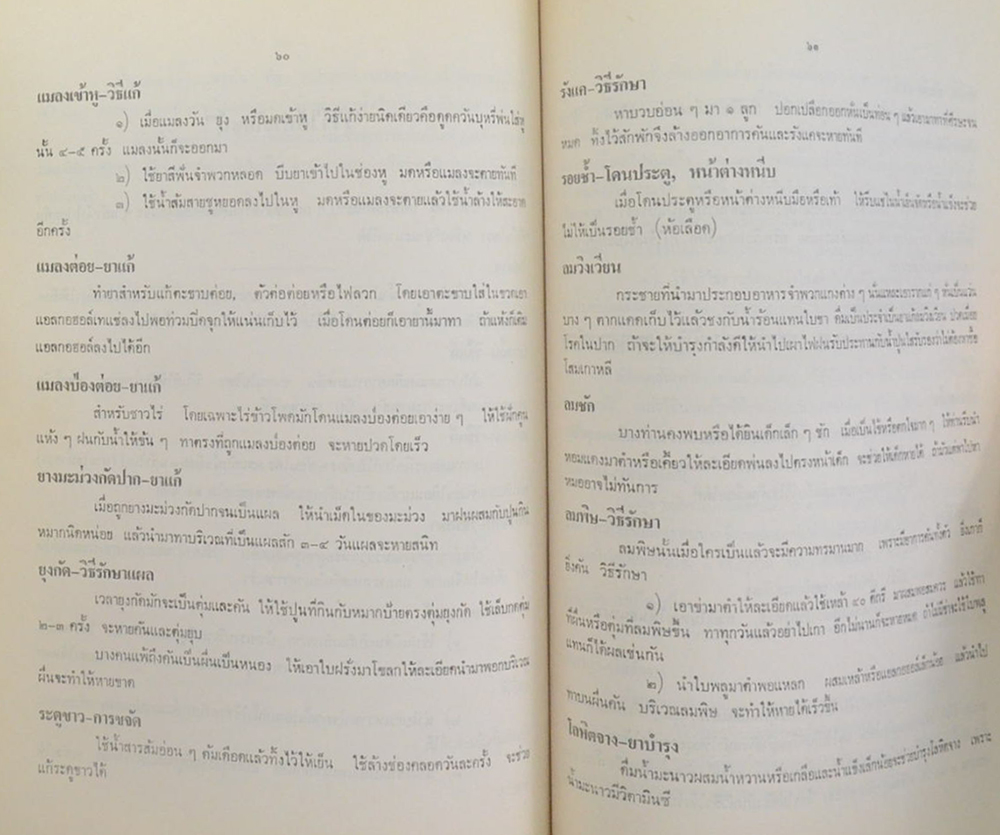 ๖๐
แมลงเข้าหู-วิธีแก้
๑) เมื่อแมลงวัน ยุง หรือมดเข้าหู วิธีแก้ง่ายนิดเดียวคือดูดควันบุหรี่พ่นใส่หู
นั้น ๔-๕ ครั้ง แมลงนั้นก็จะออกมา
๒) ใช้ยาสีฟันจำพวกหลอด บีบยาเข้าไปในช่องหู มดหรือแมลงจะตายทันที
๓) ใช้น้ำส้มสายชูหยอดลงไปในหู มดหรือแมลงจะตายแล้วใช้น้ำล้างให้สะอาด
อีกครั้ง
แมลงต่อย-ยาแก้
ทำยาสำหรับแก้ตะขาบต่อย, ตัวต่อต่อยหรือไฟลวก โดยเอาตะขาบใส่ในขวดเอา
แอลกอฮอล์เทแช่ลงไปพอท่วมปิดจุกให้แน่นเก็บไว้ เมื่อโดนต่อยก็เอายานี้มาทา ถ้าแห้งก็เติม
แอลกอฮอล์ลงไปได้อีก
แมลงป่องต่อย-ยาแก้
สำหรับชาวไร่ โดยเฉพาะไร่ข้าวโพดมักโดนแมลงป่องต่อยเอาง่าย ๆ ให้ใช้ฝักคูน
แห้ง ๆ ฝนกับน้ำให้ข้น ๆ ทาตรงที่ถูกแมลงป่องต่อย จะหายปวดโดยเร็ว
ยางมะม่วงกัดปาก-ยาแก้
เมื่อถูกยางมะม่วงกัดปากจนเป็นแผล ให้นำเม็ดในของมะม่วง มาฝนผสมกับปูนกิน
หมากนิดหน่อย แล้วนำมาทาบริเวณที่เป็นแผลสัก ๓-๔ วันแผลจะหายสนิท
ยุงกัด-วิธีรักษาแผล
เวลายุงกัดมักจะเป็นตุ่มและคัน ให้ใช้ปูนที่กินกับหมากป้ายตรงตุ่มยุงกัด ใช้เล็บกดตุ่ม
๒-๓ ครั้ง จะหายคันและตุ่มยุบ
บางคนแพ้ถึงคันเป็นผื่นเป็นหนอง ให้เอาใบฝรั่งมาโขลกให้ละเอียดนำมาพอกบริเวณ
ผื่นจะทำให้หายขาด
ระดูขาว-การขจัด
ใช้น้ำสารส้มอ่อน ๆ ต้มเดือดแล้วทิ้งไว้ให้เย็น ใช้ล้างช่องคลอดวันละครั้ง จะช่วย
แก้ระดูขาวได้
๖๑
รังแค-วิธีรักษา
หาบวบอ่อน ๆ มา ๑ ลูก ปอกเปลือกออกหั่นเป็นท่อน ๆ แล้วเอามาทาที่ศีรษะจน
หมด ทิ้งไว้สักพักจึงล้างออกอาการคันและรังแคจะหายทันที
รอยช้ำ-โดนประตู, หน้าต่างหนีบ
เมื่อโดนประตูหรือหน้าต่างหนีบมือหรือเท้า ให้รีบแช่ในน้ำเย็นหรือน้ำแข็งจะช่วย
ไม่ให้เป็นรอยช้ำ (ห้อเลือด)
ลมวิงเวียน
กระชายที่นำมาประกอบอาหารจำพวกแกงต่าง ๆ นั้นแหละเอารากแก่ ๆ หั่นเป็นแว่น
บาง ๆ ตากแดดเก็บไว้แล้วชงกับน้ำร้อนแทนใบชา ดื่มเป็นประจำเป็นยาแก้ลมวิงเวียน ปวดเมื่อย
โรคในปาก ถ้าจะให้บำรุงกำลังดีให้นำไปเผาไฟฝนรับประทานกับน้ำปูนใสรับรองว่าไม่ต้องหาซื้อ
โสมเกาหลี
ลมชัก
บางท่านคงพบหรือได้ยินเด็กเล็ก ๆ ชัก เมื่อเป็นไข้หรือตกใจมาก ๆ ให้ท่านรีบนำ
หอมแดงมาตำหรือเคี้ยวให้ละเอียดพ่นลงไปตรงหน้าเด็ก จะช่วยให้เด็กหายได้ ถ้ามัวแต่พาไปหา
หมออาจไม่ทันการ
ลมพิษ-วิธีรักษา
ลมพิษนั้นเมื่อใครเป็นแล้วจะมีความทรมานมาก เพราะมีอาการคันทั้งตัว ยิ่งเกาก็
ยิ่งคัน วิธีรักษา
๑) เอาข่ามาตำให้ละเอียดแล้วใช้เหล้า ๔๐ ดีกรี มาผสมพอสมควร แล้วใช้ทา
ที่ผื่นหรือตุ่มที่ลมพิษขึ้น ทาทุกวันแล้วอย่าไปเกา อีกไม่นานก็จะหายหมด ถ้าไม่มีข่าจะใช้ใบพลู
แทนก็ได้ผลเช่นกัน
๒) นำใบพลูมาตำพอแหลก ผสมเหล้าหรือแอลกอฮอล์เล็กน้อย แล้วนำไป
ทาบนผื่นคัน บริเวณลมพิษ จะทำให้หายได้เร็วขึ้น
โลหิตจาง-ยาบำรุง
ดื่มน้ำมะนาวผสมน้ำหวานหรือเกลือและน้ำแข็งเล็กน้อยจะช่วยบำรุงโลหิตจาง เพราะ
น้ำมะนาวมีวิตามินซี